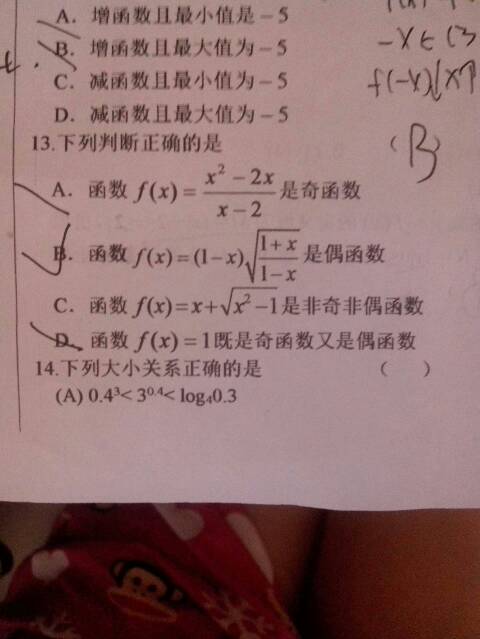 A. 增函数且最小值是－5
B. 增函数且最大值为－5
C. 减函数且最小值为－5
D. 减函数且最大值为－5
－x∈(3
f(-x)
13.下列判断正确的是 (B)
A. 函数 f(x) = \frac{x² － 2x}{x － 2} 是奇函数
B. 函数 f(x) = (1－x)√\frac{1＋x}{1－x} 是偶函数
C. 函数 f(x)=x+√x²－1 是非奇非偶函数
D. 函数 f(x) = 1既是奇函数又是偶函数
14.下列大小关系正确的是 （ ）
(A) 0.4³< 3⁰·⁴< log₄0.3